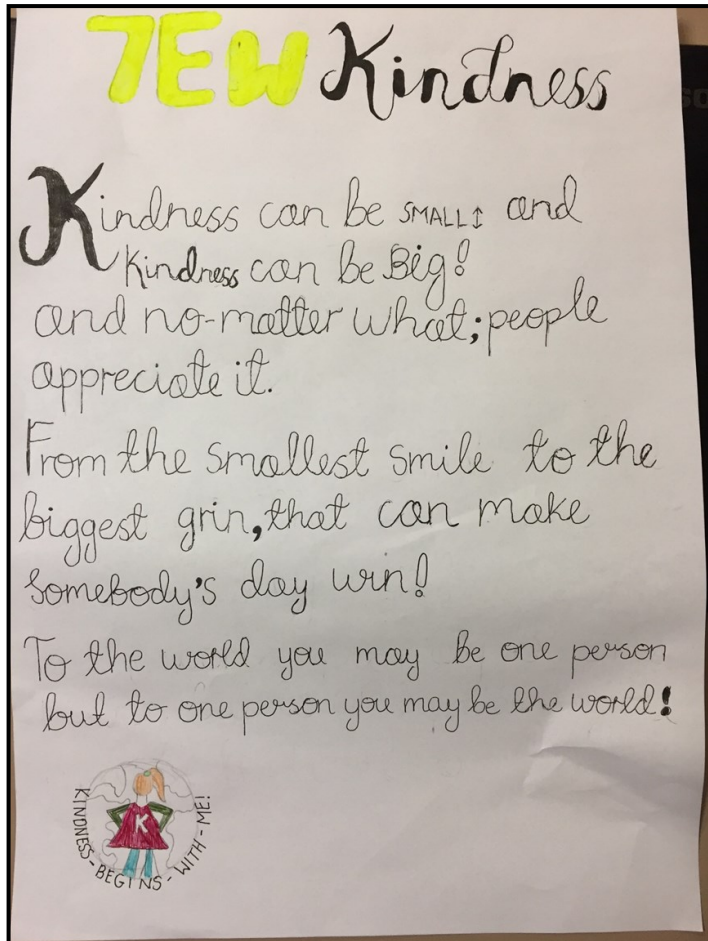 7EW Kindness
Kindness can be SMALL↕ and
Kindness can be Big!
and no-matter what; people
appreciate it.
From the smallest smile to the
biggest grin, that can make
somebody's day win!
To the world you may be one person
but to one person you may be the world!
K
KINDNESS-BEGINS-WITH-ME!